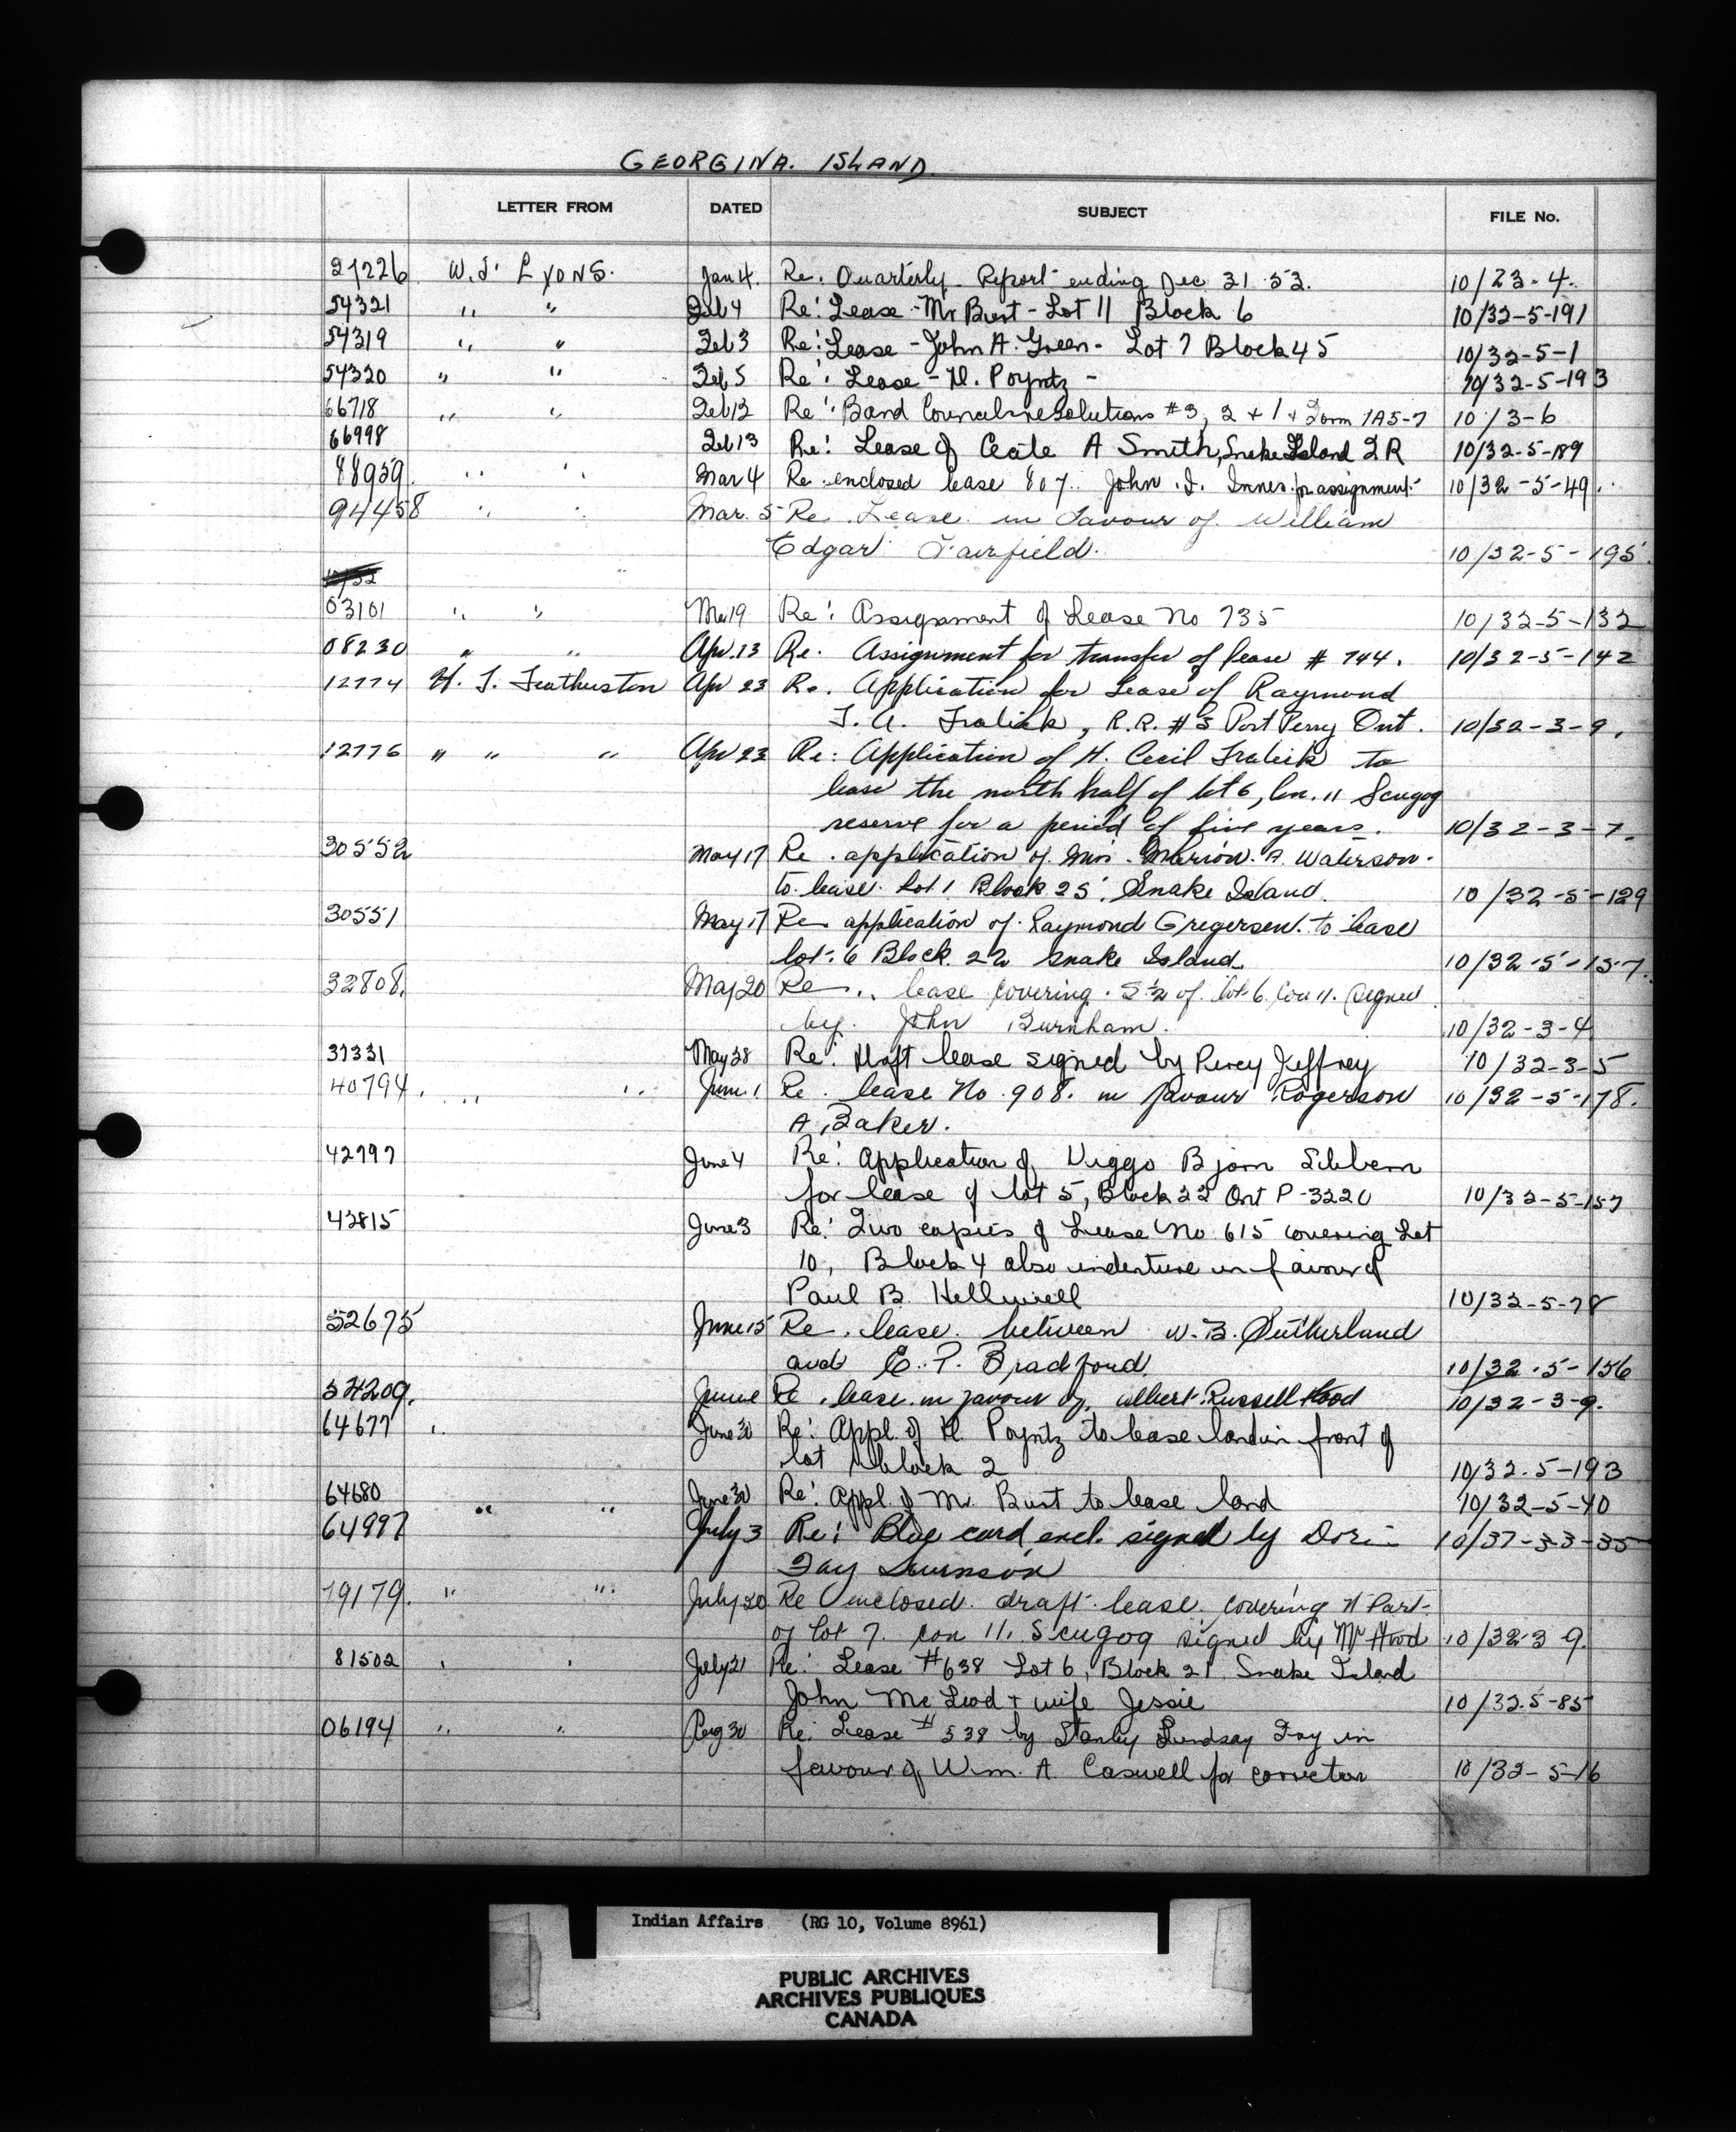 GEORGINA. ISLAND
LETTER FROM DATED SUBJECT FILE No.
27226 W.J. LYONS. Jan 4. Re. Quarterly Report ending Dec 31 53. 10/23-4.
54321 " " Feb 4 Re: Lease - Mr Burt - Lot 11 Block 6 10/32-5-191
54319 " " Feb 3 Re: Lease - John A. Green - Lot 7 Block 45 10/32-5-1
54320 " " Feb 5 Re: Lease - H. Poyntz - 10/32-5-193
66718 " " Feb 12 Re: Band Council resolutions #3, 2 + 1 + Form 1A5-7 10/3-6
66998 Feb 13 Re: Lease of Ceale A Smith, Snake Island I R 10/32-5-189
88959. " " Mar 4 Re enclosed lease 807. John . Innes for assignment 10/32-5-49.
94458 " " Mar. 5 Re. Lease in favour of William
Edgar Fairfield. 10/32-5-195.
03101 " " Mar 19 Re: Assignment of Lease No 735 10/32-5-132
08230 " " Apr. 13 Re. Assignment for transfer of lease # 744. 10/32-5-142
12774 H. J. Featherston Apr 23 Re. Application for Lease of Raymond
J. A. Fralick, R.R. #3 Port Perry Ont. 10/32-3-9.
12776 " " " Apr 23 Re: Application of H. Cecil Fralick to
lease the north half of lot 6, Con. 11 Scugog
reserve for a period of five years. 10/32-3-7.
30552 May 17 Re. application of Mrs. Marion. A. Waterson.
to lease Lot 1 Block 25. Snake Island. 10/32-5-129
30551 May 17 Re application of Raymond Gregersen. to lease
lot. 6 Block. 22 Snake Island. 10/32-5-157.
32808. May 20 Re .. lease covering. S½ of lot 6 Con 11. signed
by. John Burnham. 10/32-3-4
37331 May 28 Re: Draft lease signed by Percy Jeffrey 10/32-3-5
40794. " " June 1 Re. lease No. 908. in favour Rogerson
A. Baker. 10/32-5-178.
42797 June 4 Re: Application of Viggo Bjorn Sibbern
for lease of lot 5, Block 22 Ont P-3220 10/32-5-157
43815 June 3 Re: Two copies of Lease No 615 covering Lot
10, Block 4 also indenture in favour of
Paul B. Helliwell 10/32-5-78
52675 June 15 Re. lease. between W.B. Sutherland
and E. P. Bradford. 10/32.5-156
54209. June Re. lease in favour of. Albert Russell Hood 10/32-3-9.
64677 " June 30 Re: Appl. of H. Poyntz to lease land in front of
lot block 2 10/32.5-193
64680 " " June 30 Re: Appl. of Mr. Burt to lease land 10/32-5-40
64997 July 3 Re: Blue card encl. signed by
Fay 10/37-33-35
79179. " " July 20 Re enclosed draft lease. covering N Part
of lot 7. con 11. Scugog signed by Mr Hood 10/32 3 9.
81502 " " July 21 Re: Lease #638 Lot 6, Block 21 Snake Island
John McLeod + wife Jessie 10/32.5-85
06194 " " Aug 30 Re: Lease # 538 by Stanley Lindsay Fry in
favour of Wm. A. Caswell for correction 10/32-5-16
Indian Affairs (RG 10, Volume 8961)
PUBLIC ARCHIVES
ARCHIVES PUBLIQUES
CANADA